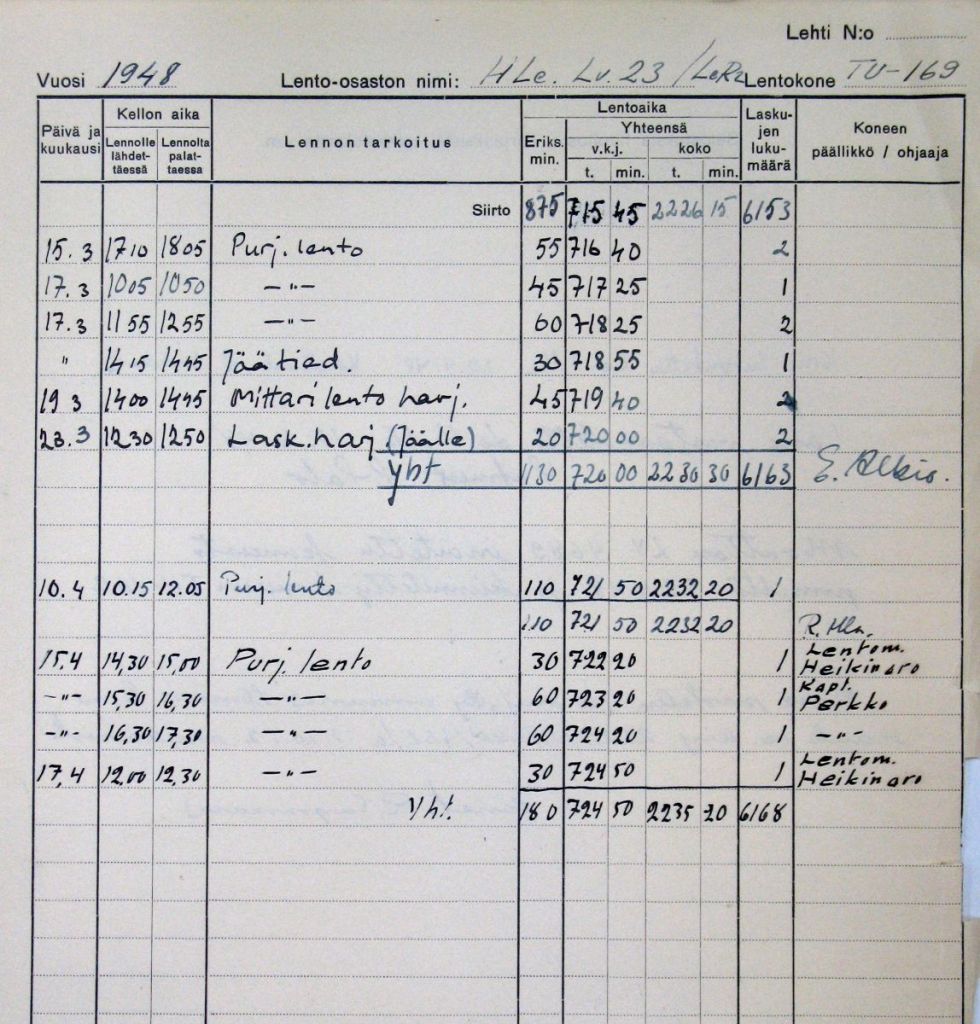 Lehti N:o
Vuosi 1948 Lento-osaston nimi: HLe. Lv. 23 / LeR2 Lentokone TU-169
Päivä ja kuukausi Kellon aika Lennolle lähdettäessä Lennolta palattaessa Lennon tarkoitus Lentoaika Eriks. min. Yhteensä v.k.j. t. min. koko t. min. Laskujen lukumäärä Koneen päällikkö / ohjaaja
Siirto 875 715 45 2226 15 6153
15. 3 1710 1805 Purj. lento 55 716 40 2
17. 3 1005 1050 —"— 45 717 25 1
17. 3 1155 1255 —"— 60 718 25 2
" 1415 1445 Jäätied. 30 718 55 1
19 3 1400 1445 Mittarilento harj. 45 719 40 2
23. 3 1230 1250 Lask. harj (Jäälle) 20 720 00 2
yht 1130 720 00 2230 30 6163 E. Alkio.
10. 4 10.15 12.05 Purj. lento 110 721 50 2232 20 1
110 721 50 2232 20 R.
15.4 14,30 15,00 Purj. lento 30 722 20 1 Lentom. Heikinaro
—"— 15,30 16,30 —"— 60 723 20 1 Kapt. Perkko
—"— 16,30 17,30 —"— 60 724 20 1 —"—
17,4 12.00 12,30 —"— 30 724 50 1 Lentom. Heikinaro
Yht. 180 724 50 2235 20 6168